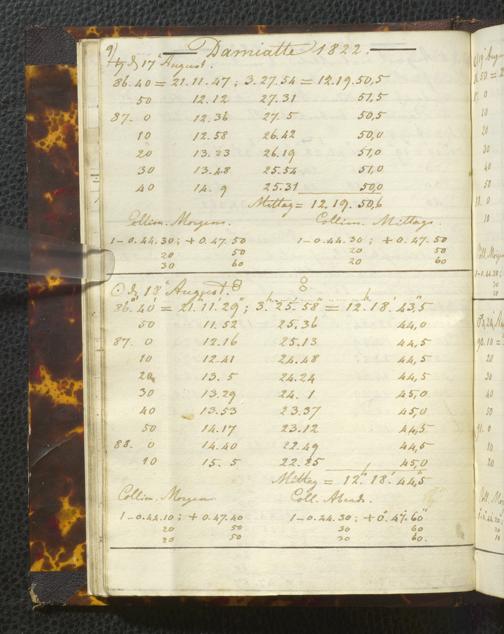 9) Damiatte 1822.
ħ d 17 August.
86.40 = 21.11.47 ; 3.27.54 = 12.19.50,5
50 12.12 27.31 51,5
87. 0 12.36 27.5 50,5
10 12.58 26.42 50,0
20 13.23 26.19 51,0
30 13.48 25.54 51,0
40 14. 9 25.31 50,0
Mittag = 12.19.50,6
Collim. Morgens. Collim. Mittags.
1-0.44.30; +0.47.50 1-0.44.30; +0.47.50
20 50 20 50
30 60 20 60
☉ d 18 August.
86.40 = 21.11.29 ; 3.25.58 = 12.18.43,5
50 11.52 25.36 44,0
87. 0 12.16 25.13 44,5
10 12.41 24.48 44,5
20 13. 5 24.24 44,5
30 13.29 24. 1 45,0
40 13.53 23.37 45,0
50 14.17 23.12 44,5
88. 0 14.40 22.49 44,5
10 15. 5 22.25 45,0
Mittag = 12.18.44,5
Collim. Morgen Coll. Abend.
1-0.44.10; +0.47.40 1-0.44.30; +0.47.60
20 50 30 60
20 50 30 60.